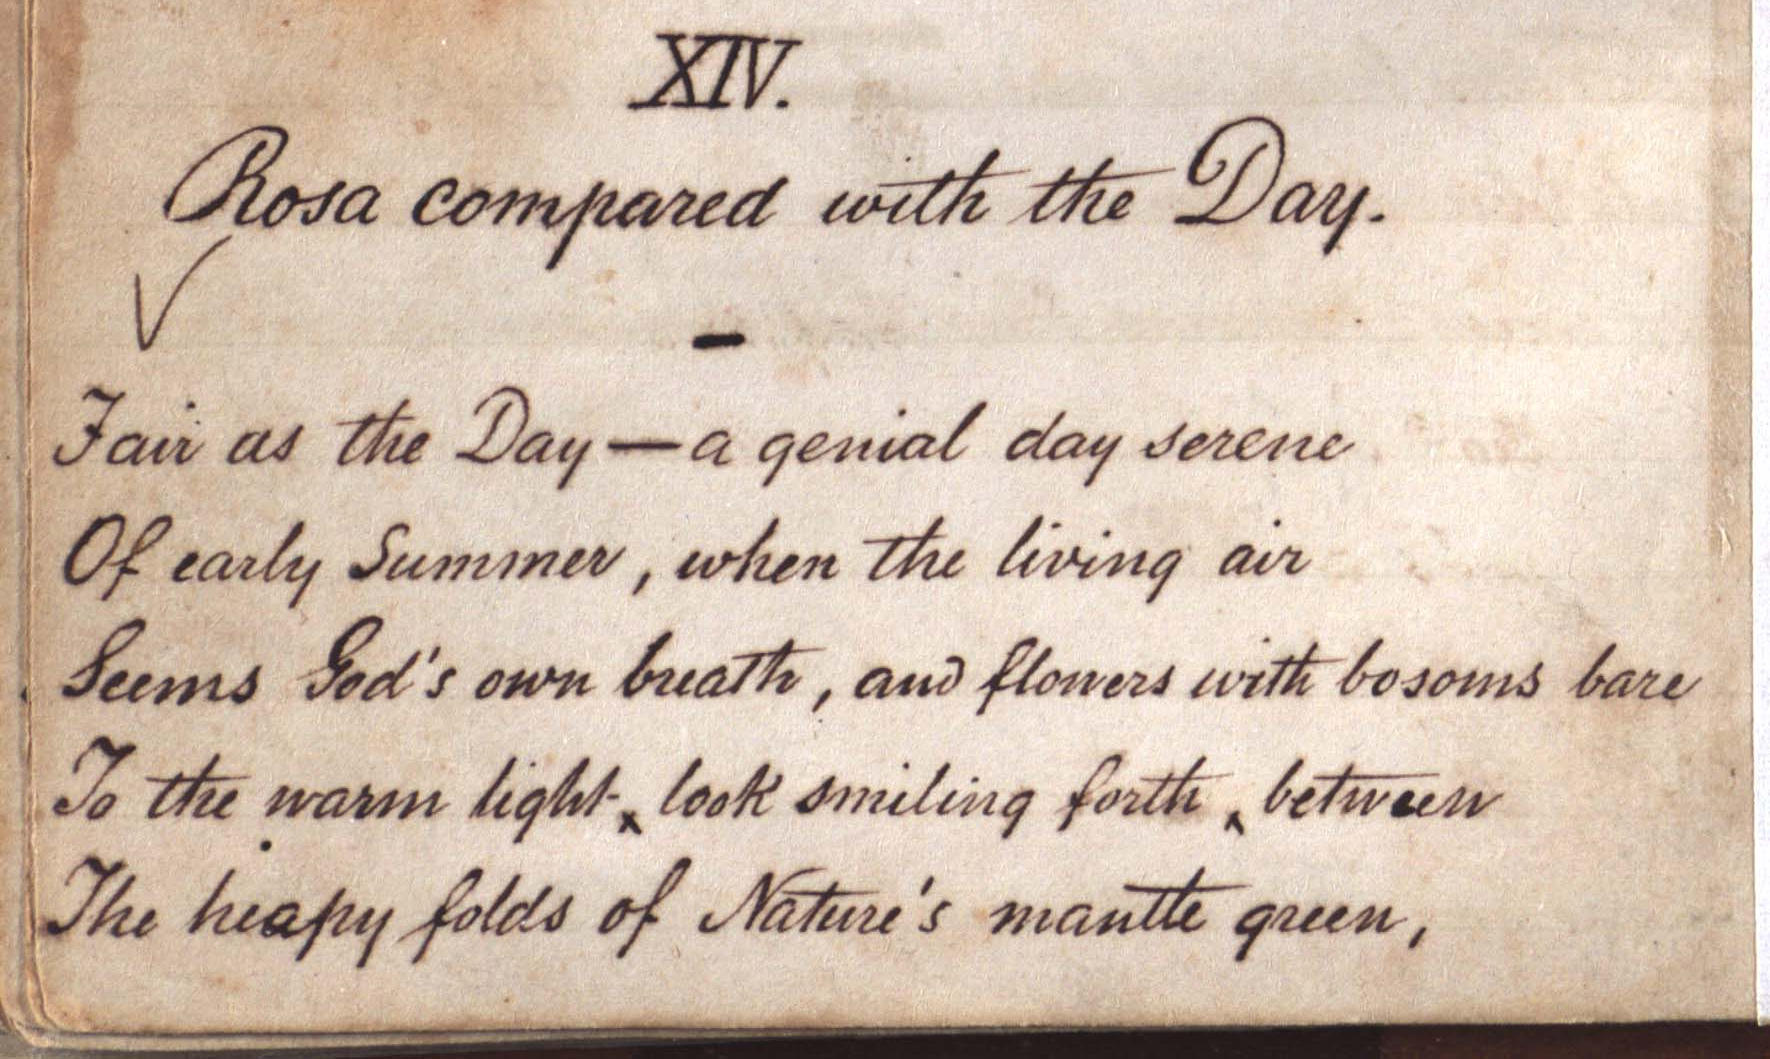 XIV.
Rosa compared with the Day.
Fair as the Day — a genial day serene
Of early Summer, when the living air
Seems God's own breath, and flowers with bosoms bare
To the warm light, look smiling forth, between
The heapy folds of Nature's mantle green,